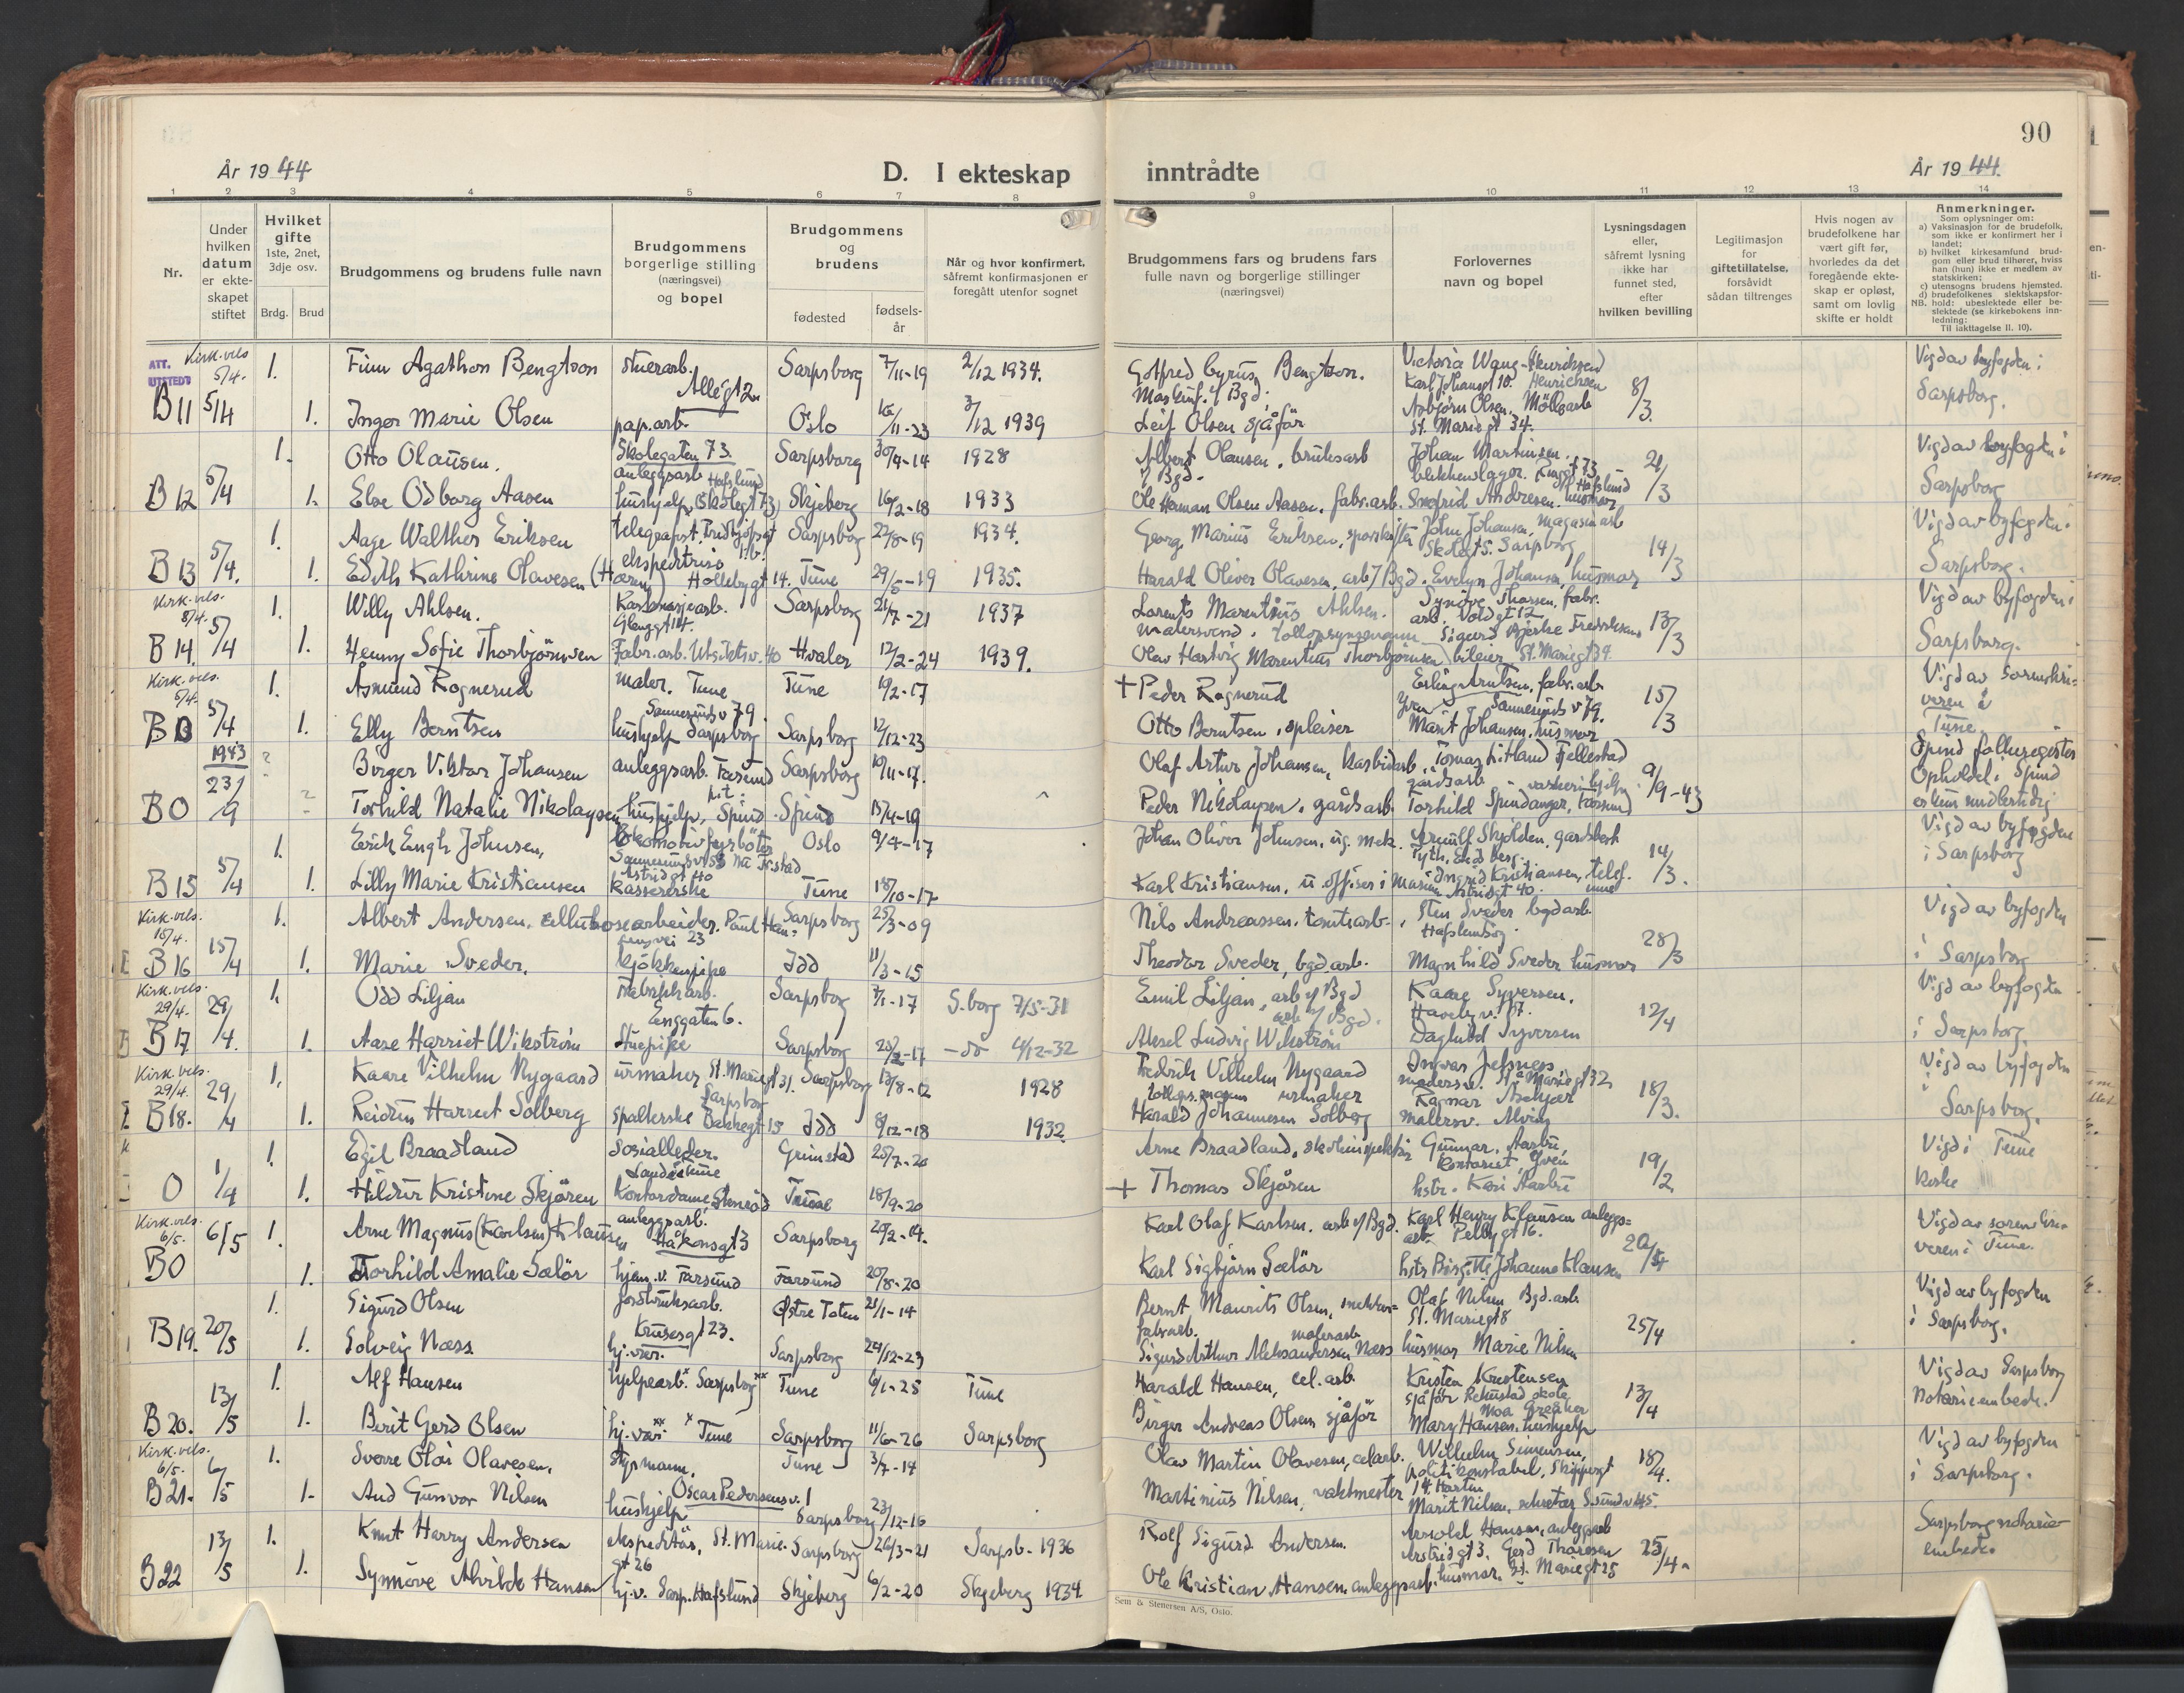 90
År 1944
D. I ekteskap inntrådte
År 1944.
1 2 3 4 5 6 7 8 9 10 11 12 13 14
Nr.
Under hvilken datum er ekte-skapet stiftet
Hvilket gifte 1ste, 2net, 3dje osv.
Brdg. Brud
Brudgommens og brudens fulle navn
Brudgommens borgerlige stilling (næringsvei) og bopel
Brudgommens og brudens
fødested
fødsels-år
Når og hvor konfirmert, såfremt konfirmasjonen er foregått utenfor sognet
Brudgommens fars og brudens fars fulle navn og borgerlige stillinger (næringsvei)
Forlovernes navn og bopel
Lysningsdagen eller, såfremt lysning ikke har funnet sted, efter hvilken bevilling
Legitimasjon for giftetillatelse, forsåvidt sådan tiltrenges
Hvis nogen av brudefolkene har vært gift før, hvorledes da det foregående ekte-skap er opløst, samt om lovlig skifte er holdt
Anmerkninger.
Som oplysninger om:
a) Vaksinasjon for de brudefolk, som ikke er konfirmert her i landet;
b) hvilket kirkesamfund brud-gom eller brud tilhører, hviss han (hun) ikke er medlem av statskirken;
c) utensogns brudens hjemsted.
d) brudefolkenes slektskapsfor-hold: ubeslektede eller be-slektede (se kirkebokens inn-ledning:
NB. Til iakttagelse II. 10).
ATT. UTSTEDT Kirk.vels 5/4. 1. Finn Agathon Bengtson stuerarb. Allégt 2 Sarpsborg 7/11-19 2/12 1934. Gotfred Cyrus Bengtson. Karl Johansgt 10. Henrichsen Vigd av byfogden i
B11 5/4 1. Inger Marie Olsen pap.arb. Oslo 16/11-23 3/12 1939 Leif Olsen sjåfør Asbjørn Olsen, Møllearb St. Mariegt 34. 8/3. Sarpsborg.
1. Otto Olausen. Skolegaten 73. anleggsarb Sarpsborg 30/4-14 1928 Albert Olausen. bruksarb y Bgd. Johan Martinsen. blikkenslager. Ringgt 73 Vigd av byfogden i
B12 5/4 1. Else Odborg Aasen hushjelp (Skolegt 73) Hafslund Skjeberg 16/2-18 1933 Ole Herman Olsen Aasen. fabr.arb. Andresen. husmor Hafslund 21/3 Sarpsborg
1. Aage Walther Eriksen Sarpsborg 22/8-19 1934. Georg Marius Eriksen, John Johansen, magasinarb Skolegt 5. Sarpsborg Vigd av byfogden i
B13 5/4. 1. Edith Kathrine Olavesen ekspeditrise Hollebygt 14. Tune 29/6-19 1935. Harald Oliver Olavesen, arb y Bgd. Evelyn Johansen, husmor 14/3 Sarpsborg.
Kirk.vels. 8/4. 1. Willy Ahlsen. Glenggt 14. Sarpsborg 21/7-21 1937 Lorents Marentius Ahlsen. malersvend. Synøve Thorsen, fabr. arb. Voldgt 12 Vigd av byfogden i
B14. 5/4 1. Henny Sofie Thorbjörnsen Fabr.arb. Utsiktsv. 40 Hvaler 12/2-24 1939. Olav Hartvig Marentius Thorbjörnsen Sigurd Bjerke Fredriksen bileier, St. Mariegt 34 13/3 Sarpsborg.
Kirk.vels. 5/4. 1. Åsmund Rognerud maler. Tune Sannesunds v 79. Tune 19/2-17 + Peder Rognerud Erling Arntsen, fabr.arb. Vigd av Sorenskri=
B13 5/4 1. Elly Berntsen hushjelp Sarpsborg Sarpsborg 12/12-23 Otto Berntsen, spleiser Sannesunds v 79. Marit Johansen, husmor 15/3 veren i Tune
1943 ? Birger Viktor Johansen anleggsarb. Farsund Sarpsborg 19/11-17. Olaf Artur Johansen, karbidarb. Tomas Litland Fjellestad gårdsarb Spind folkeregister
BO 23/9 ? Torhild Natalie Nikolaysen hushjelp, Spind Spind 15/4-19 Peder Nikolaysen. gårdsarb. Torhild Spindanger, Farsund 9/9-43 Ophold i Spind er kun midlertidig
1. Erik Engh Johnsen, Lokomotivfyrbøter Oslo 9/4-17 Johan Oliver Johnsen. Skjolden, gardsbest Vigd av byfogden
B15 5/4 1. Lilly Marie Kristiansen Astridgt 40 kassererske Tune 18/10-17 Karl Kristiansen, u.offiser i Marinen Ingrid Kristiansen, telef. Astridsgt 40. 14/3. i Sarpsborg
Kirk.vels. 15/4. 1. Albert Andersen. cellulosearbeider. Paul Han= sensvei 23 Sarpsborg 25/3-09 Nils Andreassen. tomtearb. Sten Sveder bgd arb. Vigd av byfogden
B16 15/4 1. Marie Sveder. kjøkkenpike Idd 11/3-15 Theodor Sveder, bgd.arb. Magnhild Sveder husmor 28/3 i Sarpsborg
Kirk.vels. 29/4. 1. Odd Liljan Enggaten 6. Sarpsborg 7/1-17 S.borg 7/5-31 Emil Liljan, arb y Bgd Kaare Syversen. Vigd av byfogden
B17 29/4. 1. Aase Harriet Wikström Stuepike Sarpsborg 25/2-17 -do 4/12-32 Aksel Ludvig Wikström arb y Bgd. Daghild Syversen 12/4 i Sarpsborg.
Kirk.vels. 29/4. 1. Kaare Vilhelm Nygaard urmaker St. Mariegt 31. Sarpsborg Sarpsborg 13/8-12 1928 Fredrik Vilhelm Nygaard urmaker Ingvar Jelsness St. Mariegt 32 Vigd av byfogden
B18. 29/4 1. Reidun Harriet Solberg spolerske Bakkegt 15 Idd 8/12-18 1932 Harald Johannesen Solberg Ragnar malersv. Alvim 18/3. i Sarpsborg.
1. Egil Braadland Sosialleder. Tune Grimstad 25/7-20 Arne Braadland, skoleinspektør Gunnar Aarbu, kontorist, Yven Vigd i Tune
O 1/4 1. Hildur Kristine Skjören Kontordame Stenrød Tune 18/9-20 + Thomas Skjören hstr. Kari Aarbu 19/2 kirke
Kirk.vels. 6/5. 6/5 1. Arne Magnus (Karlsen) Klausen anleggsarb. Håkonsgt 3 Sarpsborg 20/2-14. Karl Olaf Karlsen. arb y Bgd. Karl Henry Klausen anleggs= arb. Pellygt 16. Vigd av sorenskri=
BO 1. Torhild Amalie Sælör hjem.v. Farsund Farsund 20/8-20 Karl Sigbjörn Sælör hstr Birgitte Johanne Klausen 20/4 veren i Tune.
1. Sigurd Olsen jordbruksarb. Krusesgt 23. Østre Toten 21/1-14 Bernt Maurits Olsen, fabrarb. Olaf Nilsen Bgd.arb. St. Mariegt 8 Vigd av byfogden
B19. 20/5 1. Solveig Næss hj.vær. Sarpsborg 24/12-23 Sigurd Arthur Aleksandersen Næss malerarb. husmor Marie Nilsen 25/4 i Sarpsborg.
1. Alf Hansen hjelpearb.* Sarpsborg** Tune 6/1-25 Tune Harald Hansen, cel.arb. Kristen Kristensen sjåfør skole Vigd av Sarpsborg
B20. 13/5 1. Berit Gerd Olsen hj.vær.** *Tune Sarpsborg 11/6-26 Sarpsborg Birger Andreas Olsen sjåför Mary Hansen. hushjelp 13/4 Notarieembede.
Kirk.vels. 6/5. 1. Sverre Olai Olavesen. Styrmann. Oscar Pedersens v. 1 Tune 3/7-14 Olav Martin Olavesen, cel.arb. Wilhelm Simensen, politikonstabel, Skippergt 14 Vigd av byfogden
B21. 6/5 1. Aud Gunvor Nilsen hushjelp Sarpsborg 23/12-16 Martinius Nilsen, vaktmester Marit Nilsen, sekretær S.sundv 45. 18/4. i Sarpsborg.
1. Knut Harry Andersen ekspeditör, St. Marie- gt 26 Sarpsborg 26/3-21 Sarpsb. 1936 Rolf Sigurd Andersen. Arnold Hansen, anleggsarb Astridgt 3. Gerd Thoresen Sarpsborg notarie-
B22 13/5 1. Synnöve Alvilde Hansen hj.v. Sarp. Hafslund Skjeberg 6/2-20 Skjeberg 1934 Ole Kristian Hansen. anleggsarb. husmor. St. Mariegt 25 25/4. embede.
Sem & Stenersen A/S, Oslo.